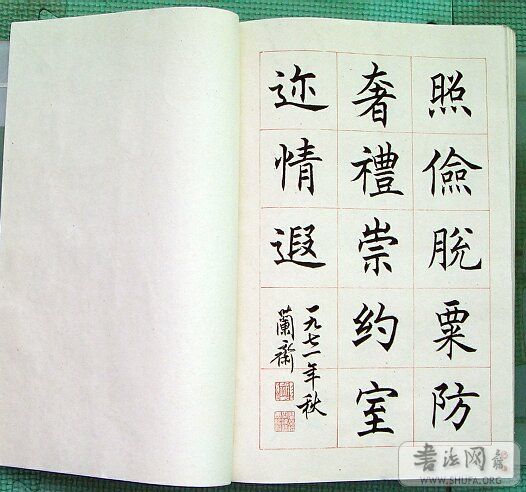 照儉脫粟防
奢禮崇约室
迩情遐
一九七一年秋
蘭斋
书法网
WWW.SHUFA.ORG